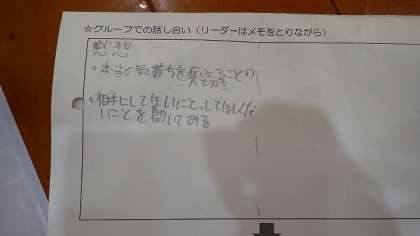 ☆グループでの話し合い（リーダーはメモをとりながら）
感想
・本当の気持ちを伝えることの
大切さ
・相手にしてほしいこと、してほしくな
いことを聞いてみる